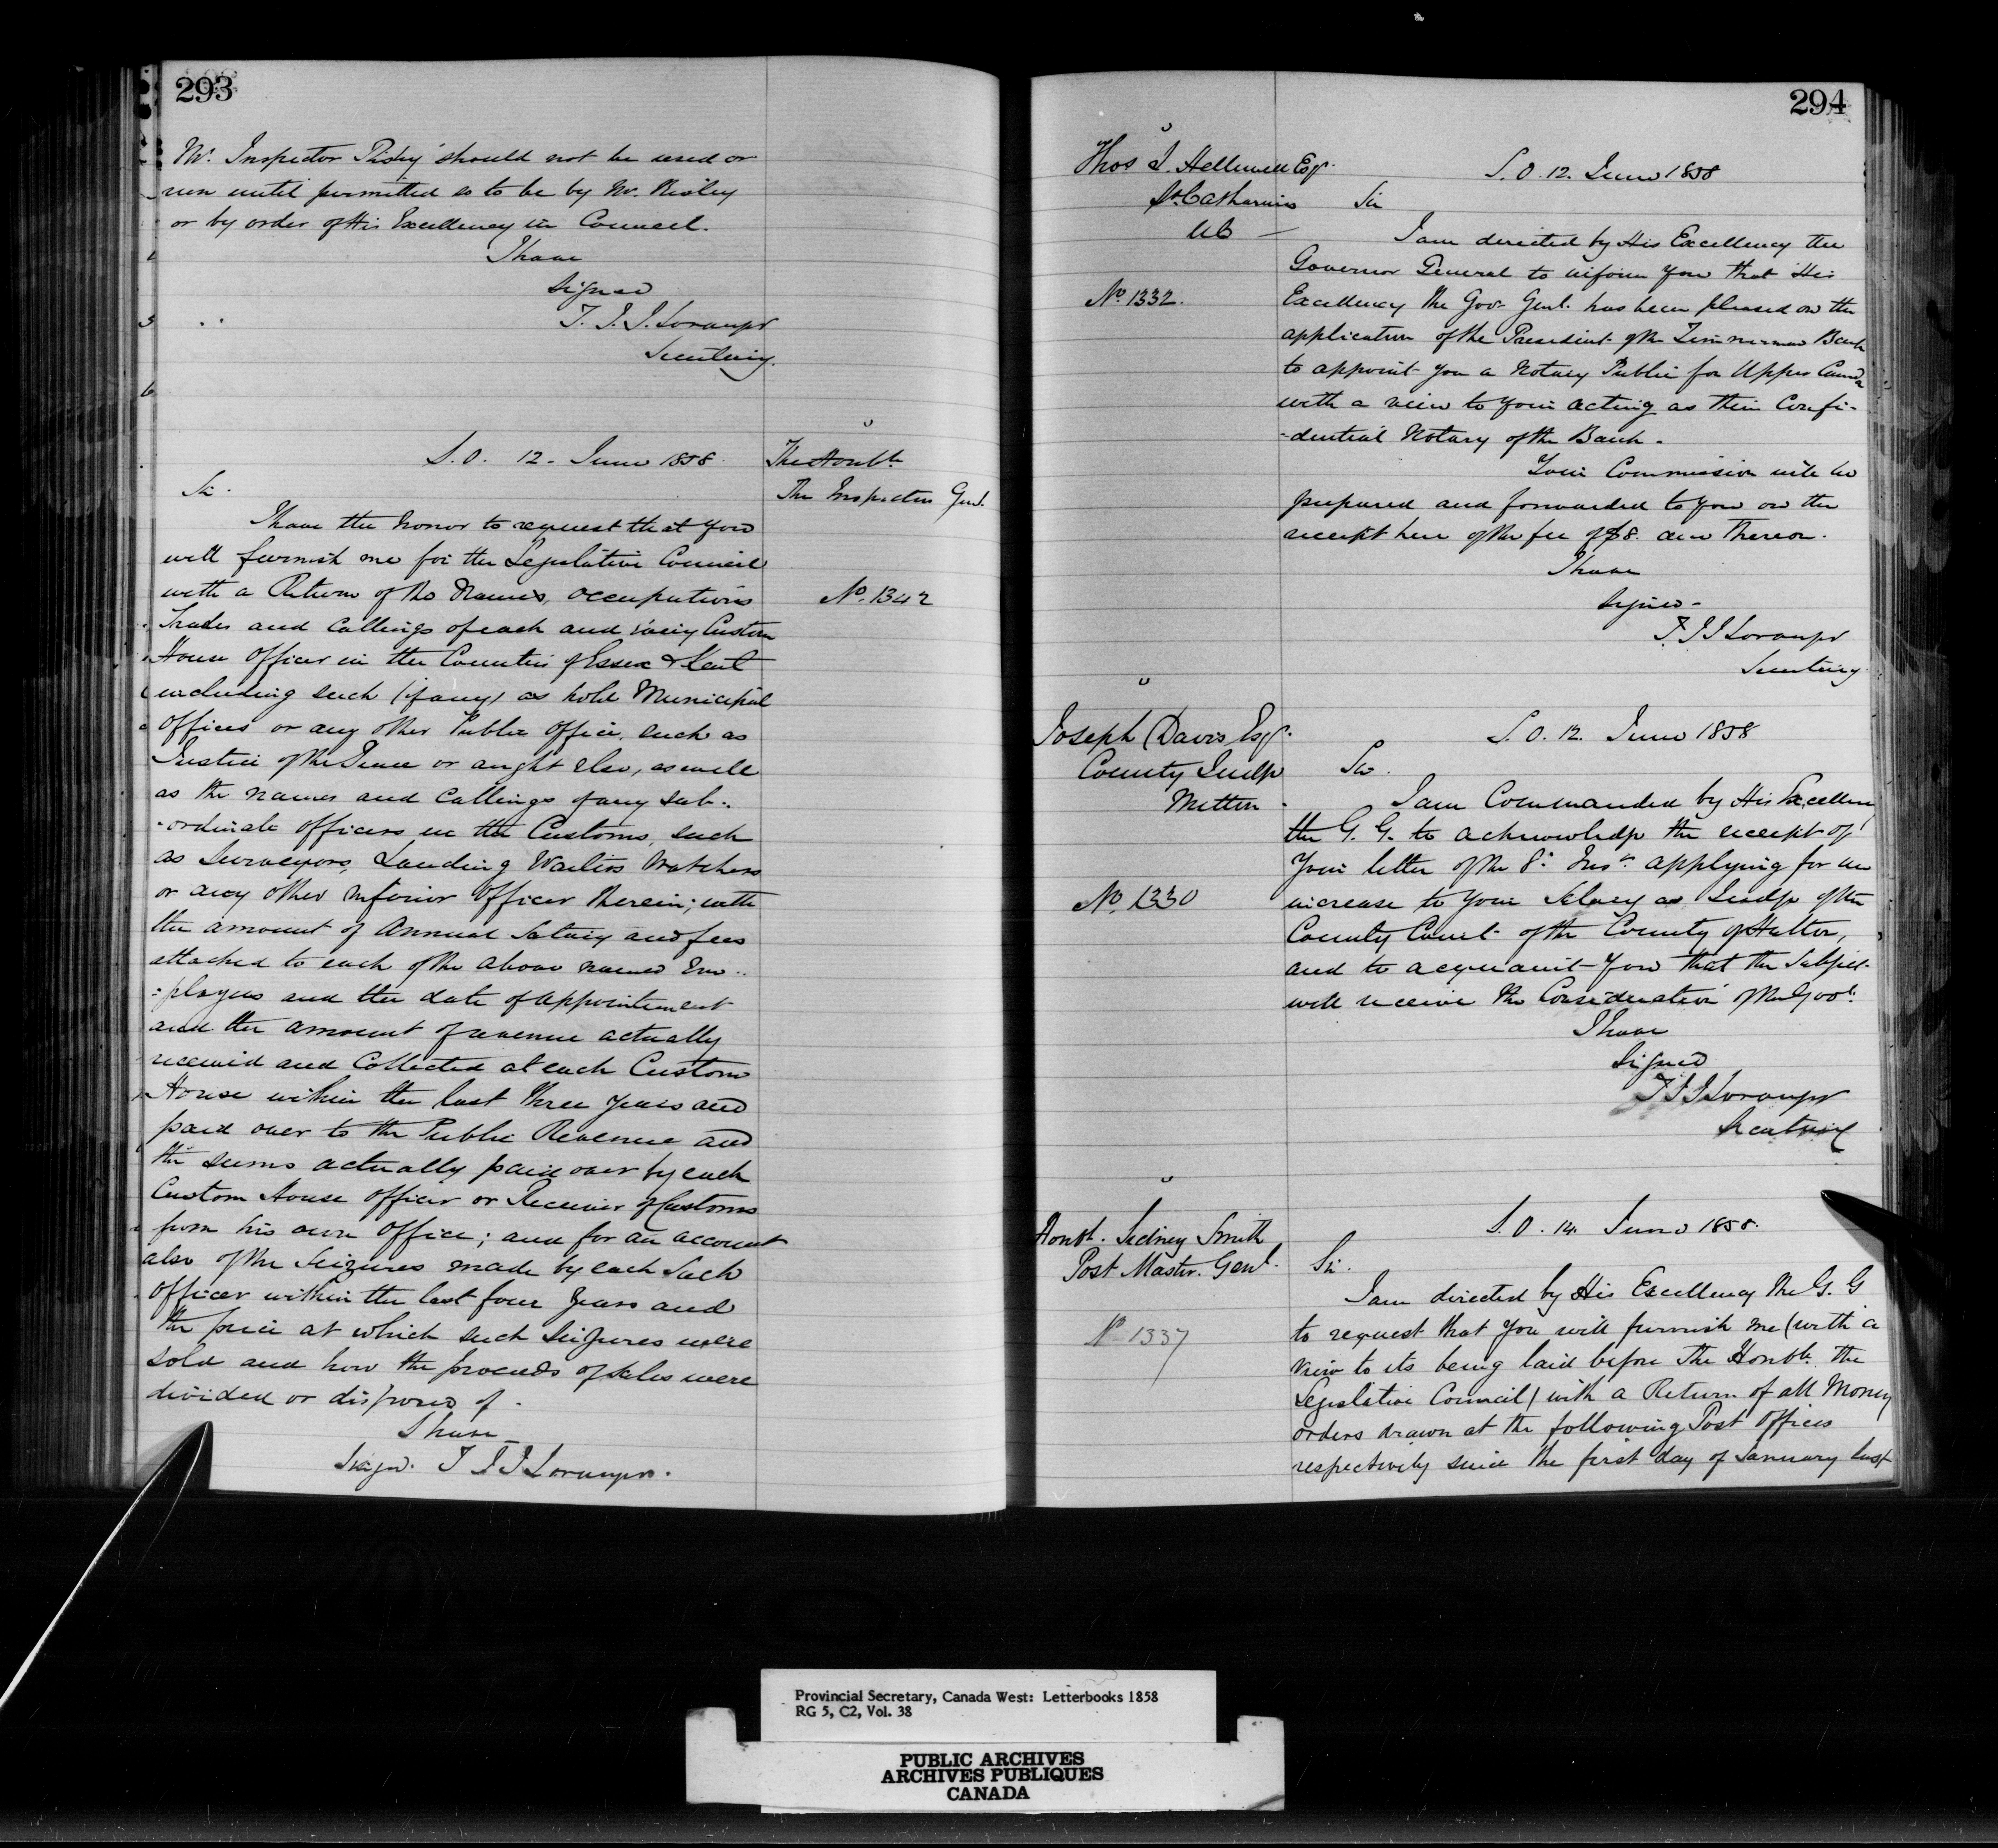 293
Mr. Inspector Risley should not be used or
run until permitted so to be by Mr. Risley
or by order of His Excellency in Council.
I have
Signed
T. J. J. Loranger
Secretary.
S.O. 12. June 1858.
The Honble.
The Inspector Genl.
Sir.
I have the honor to request that you
will furnish me for the Legislative Council
with a Return of the Names, occupations
No. 1342
Trades and Callings of each and every Custom
House Officer in the Counties of Essex & Kent
including such (if any) as hold Municipal
Offices or any other Public Office, such as
Justice of the Peace or aught else, as well
as the names and Callings of any sub-
-ordinate officers in the Customs, such
as Surveyors, Landing Waiters Watchers
or any other inferior Officer therein; with
the amount of Annual Salary and fees
attached to each of the above named Em-
-ployees and the date of appointment
and the amount of revenue actually
received and Collected at each Custom
House within the last three years and
paid over to the Public Revenue and
the sums actually paid over by each
Custom House Officer or Receiver of Customs
from his own Office; and for an account
also of the Seizures made by each such
Officer within the last four years and
the price at which such Seizures were
sold and how the proceeds of sales were
divided or disposed of.
I have
Signd. T J J Loranger.
294
Thos J. Helliwell Esqr.
St. Catharines
UC
S.O. 12. June 1858
Sir
I am directed by His Excellency the
Governor General to inform you that His
No. 1332.
Excellency the Gov. Genl. has been pleased on the
application of the President of the Zimmerman Bank
to appoint you a Notary Public for Upper Canada
with a view to your acting as their Confi-
-dential Notary of the Bank.
Your Commission will be
prepared and forwarded to you on the
receipt here of the fee of $8. due thereon.
I have
Signed
T J J Loranger
Secretary
Joseph Davis Esqr.
County Judge
Milton
S.O. 12. June 1858
Sir.
I am Commanded by His Excellency
the G. G. to acknowledge the receipt of
your letter of the 8. Inst. applying for an
No. 1330
increase to your Salary as Judge of the
County Court of the County of Halton,
and to acquaint you that the Subject
will receive the Consideration of the Govt.
I have
Signed
T J J Loranger
Secretary
Honbl. Sidney Smith
Post Mastr. Genl.
S.O. 14. June 1858.
Sir.
I am directed by His Excellency the G. G
No 1337
to request that you will furnish me (with a
view to its being laid before the Honble. the
Legislative Council) with a Return of all Money
orders drawn at the following Post Offices
respectively since the first day of January last
Provincial Secretary, Canada West: Letterbooks 1858
RG 5, C2, Vol. 38
PUBLIC ARCHIVES
ARCHIVES PUBLIQUES
CANADA